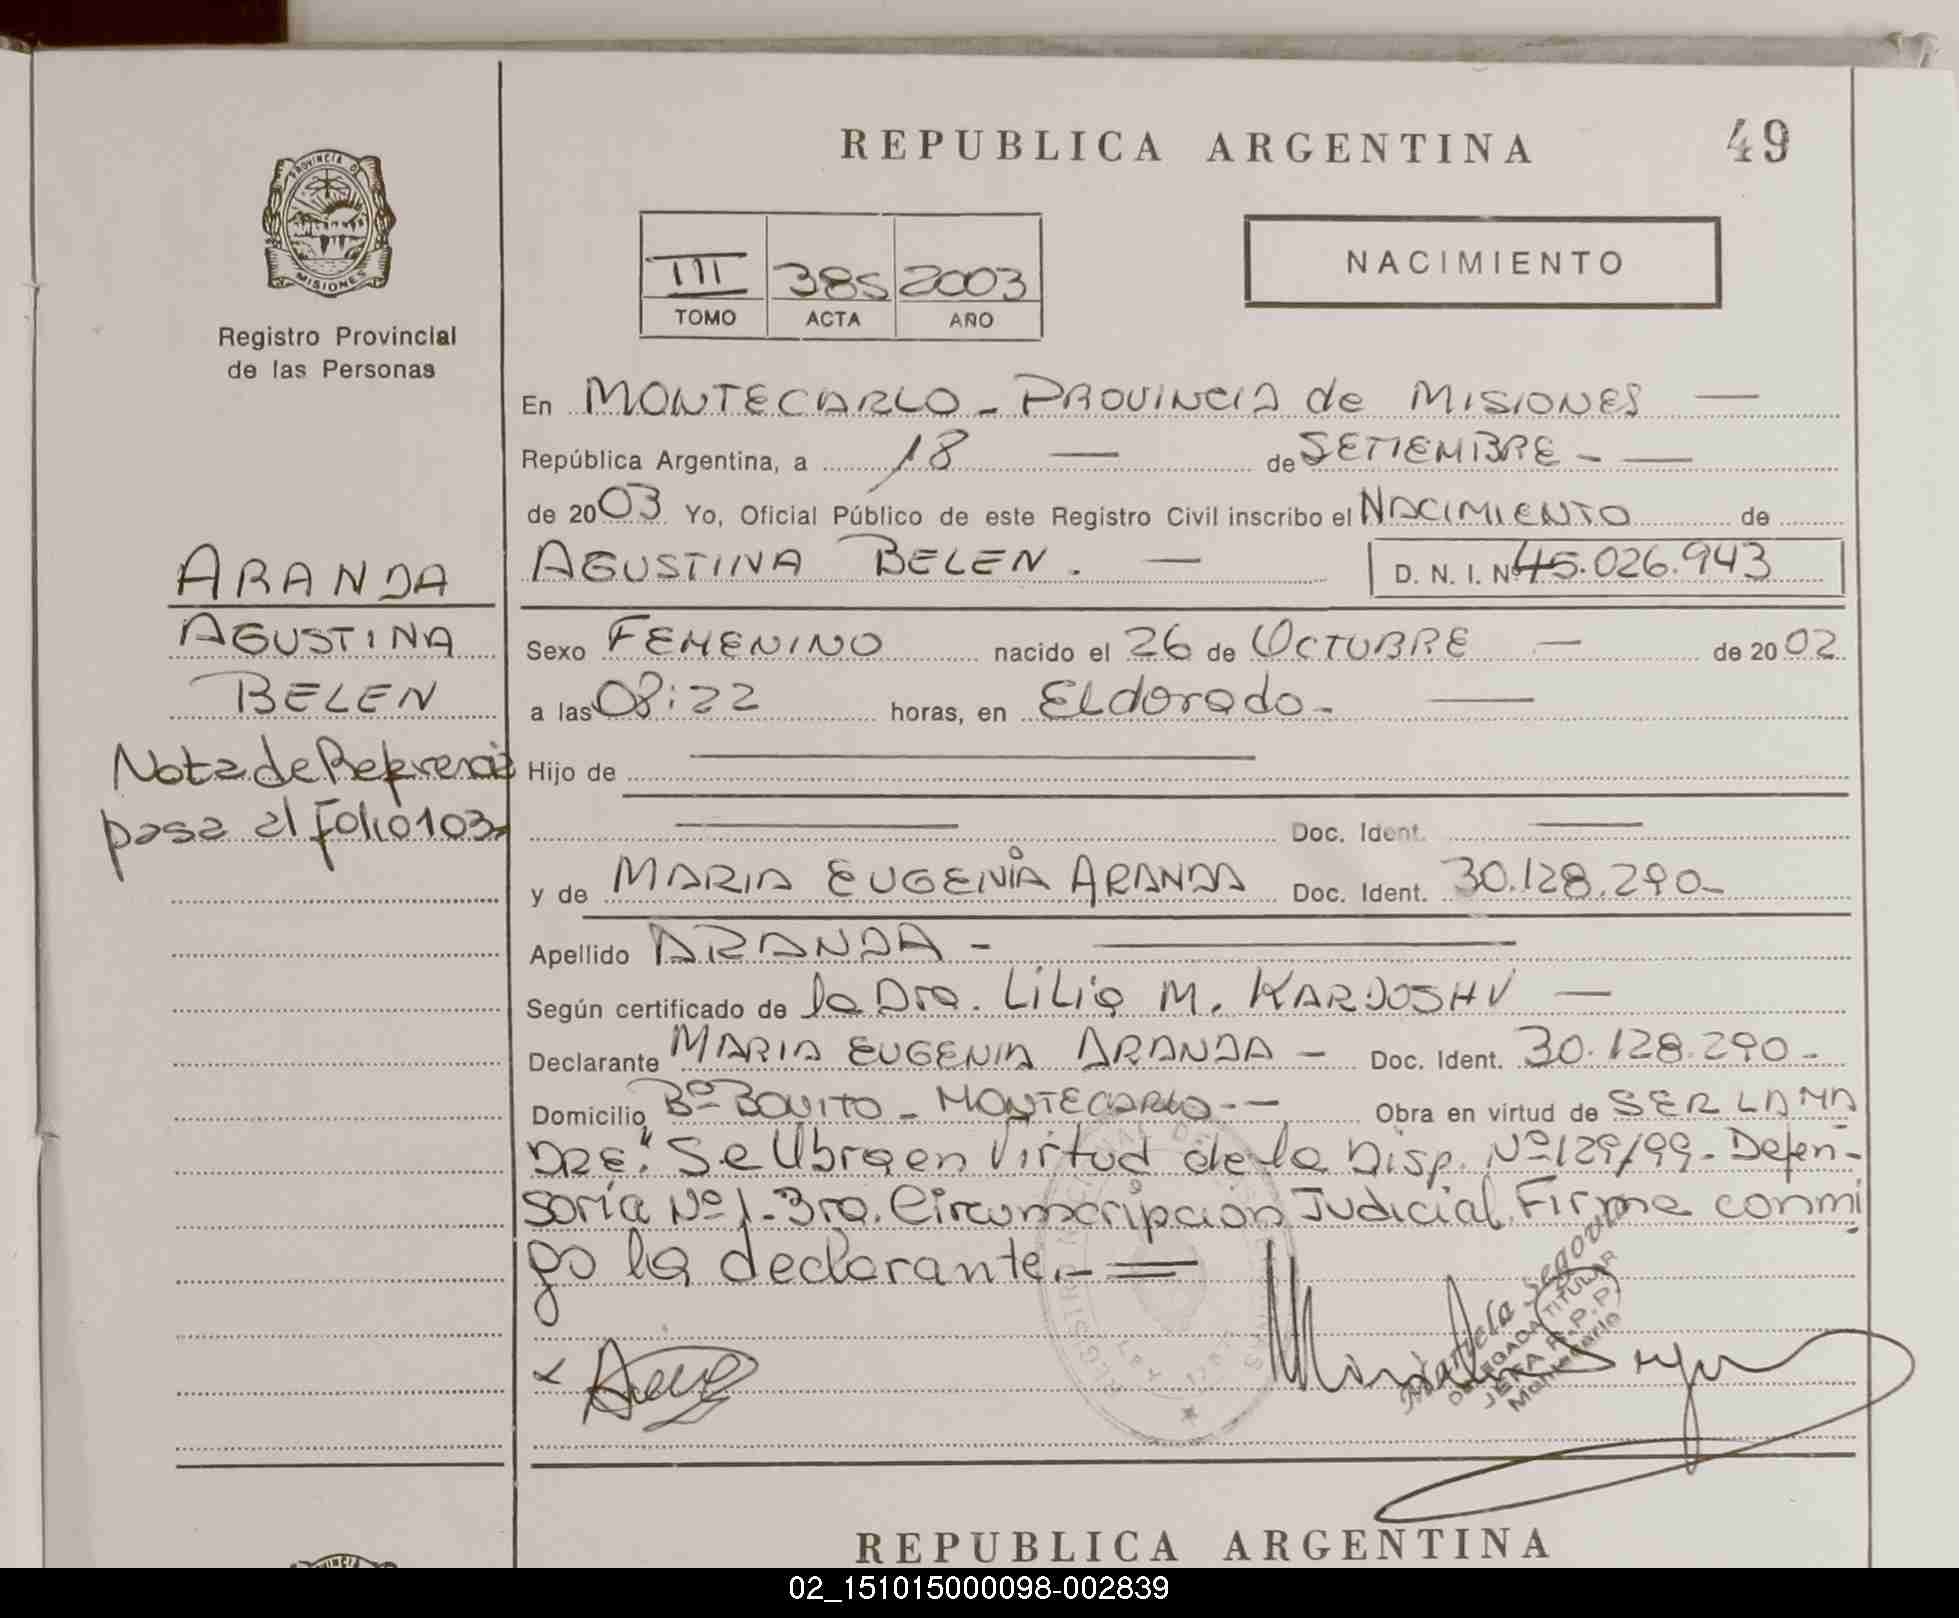 REPUBLICA ARGENTINA
49
PROVINCIA DE
MISIONES
Registro Provincial
de las Personas
III 385 2003
TOMO ACTA AÑO
NACIMIENTO
En MONTECARLO - PROVINCIA de MISIONES —
República Argentina, a 18 — de SETIEMBRE - —
de 2003 Yo, Oficial Público de este Registro Civil inscribo el NACIMIENTO de
AGUSTINA BELEN. — D. N. I. Nº 45.026.943
ARANDA
AGUSTINA
BELEN
Nota de Referencia
pasa al Folio 103
Sexo FEMENINO nacido el 26 de OCTUBRE — de 2002
a las 08:22 horas, en Eldorado - —
Hijo de —
— Doc. Ident. —
y de MARIA EUGENIA ARANDA Doc. Ident. 30.128.290-
Apellido ARANDA - —
Según certificado de la Dra. Lilia M. KARDOSHV —
Declarante MARIA EUGENIA ARANDA - Doc. Ident. 30.128.290-
Domicilio Bº BOVITO - MONTECARLO -- Obra en virtud de SER LA MA
DRE." Se Obra en Virtud de la Disp. Nº 129/99 - Defen-
soría Nº 1 - 3ra. Circunscripción Judicial. Firma conmi
go la declarante.- =
Mariela Segovia
DELEGADA TITULAR
JEFA R.P.P.
Montecarlo
REPUBLICA ARGENTINA
02_151015000098-002839